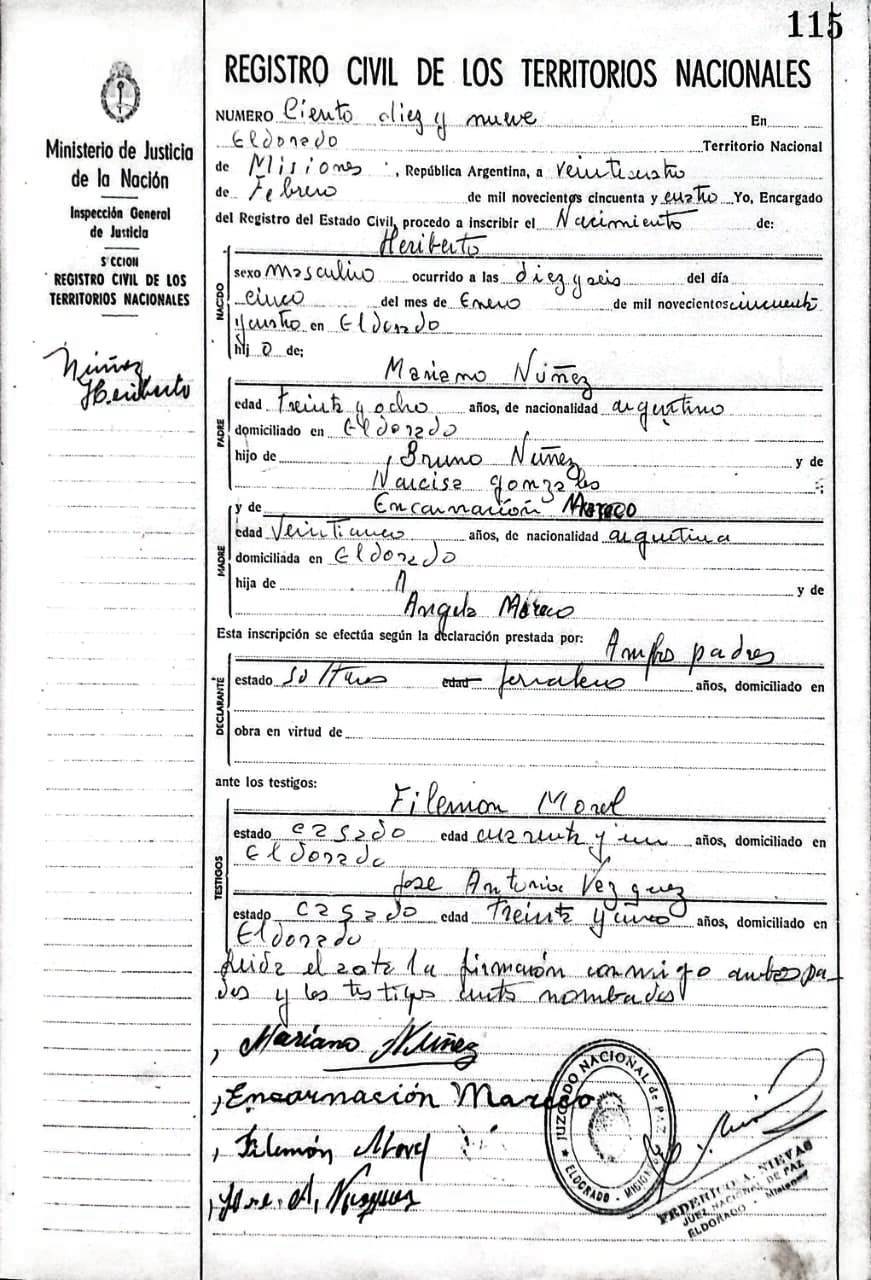 115
REGISTRO CIVIL DE LOS TERRITORIOS NACIONALES
Ministerio de Justicia
de la Nación
Inspección General
de Justicia
S'CCION
REGISTRO CIVIL DE LOS
TERRITORIOS NACIONALES
Núñez
Heriberto
NUMERO Ciento diez y nueve En
Eldorado Territorio Nacional
de Misiones, República Argentina, a veinticuatro
de Febrero de mil novecientos cincuenta y cuatro Yo, Encargado
del Registro del Estado Civil, procedo a inscribir el Nacimiento de:
Heriberto
NACDO
sexo masculino ocurrido a las diez y seis del día
cinco del mes de Enero de mil novecientos cincuenta
y cuatro en Eldorado
hij o de;
Mariano Núñez
PADRE
edad treinta y ocho años, de nacionalidad argentino
domiciliado en Eldorado
hijo de Bruno Núñez y de
Narcisa Gonzales
y de Encarnación Mareco
MADRE
edad veinticinco años, de nacionalidad argentina
domiciliada en Eldorado
hija de y de
Angela Mareco
Esta inscripción se efectúa según la declaración prestada por: Ambos padres
DECLARANTE
estado solteros edad jornalero años, domiciliado en
obra en virtud de
ante los testigos:
Filemon Morel
TESTIGOS
estado casado edad cuarenta y un años, domiciliado en
Eldorado
Jose Antonio Vezquez
estado casado edad treinta y cinco años, domiciliado en
Eldorado
Leida el acta la firmarón conmigo ambos pa-
dres y los testigos nombrados
Mariano Núñez
Encarnación Mareco
Filemón Morel
Jose A,
JUZGADO NACIONAL de PAZ
ELDORADO - MISIONES
FEDERICO A. NIEVAS
JUEZ NACIONAL DE PAZ
ELDORADO - Misiones